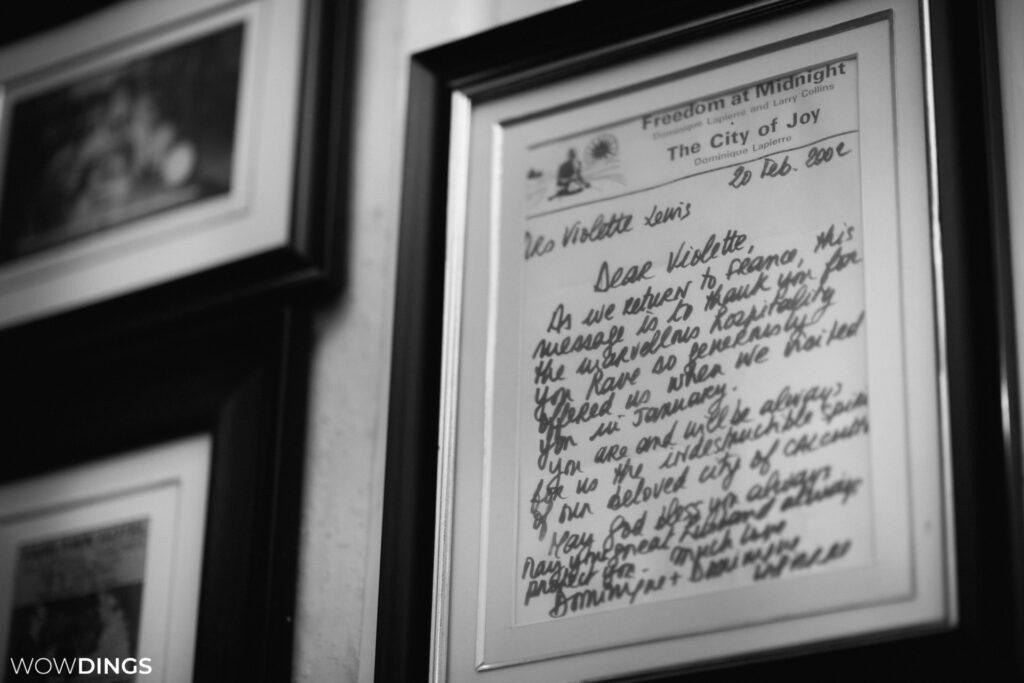 Freedom at Midnight
Dominique Lapierre and Larry Collins
The City of Joy
Dominique Lapierre
20 Feb. 2002
Mrs Violette Lewis
Dear Violette,
As we return to France, this
message is to thank you for
the marvellous hospitality
you have so generously
offered us when we visited
you in January.
You are and will be always
for us the indestructible
of our beloved city of Calcutta
May God bless you always
may your great husband always
protect you. Much love
Dominique +
Lapierre
WOWDINGS